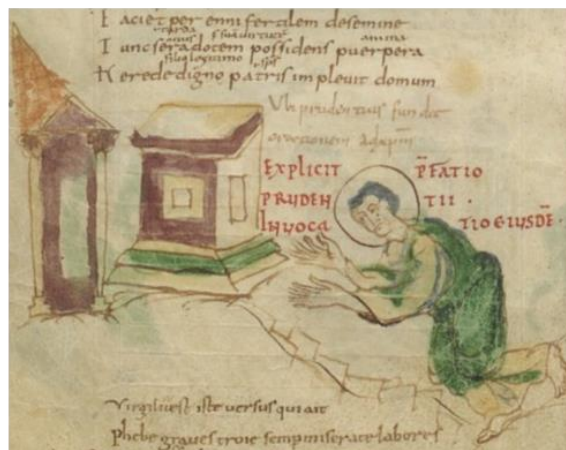 Iaciet per enni fertilem de semine
Tunc sera dotem possidens puerpera
herede digno patris implevit domum
Ubi prudentius fundit
orationem ad xpm
EXPLICIT P̄FATIO
PRUDEN TII ·
INVOCA TIO EIUSDĒ ·
Virgilii est iste versus qui ait
Phebe graves troie semp miserate labores